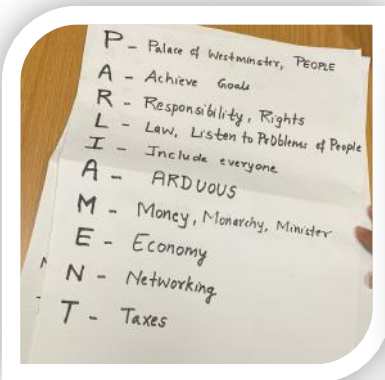 P - Palace of Westminster, PEOPLE
A - Achieve Goals
R - Responsibility, Rights
L - Law, Listen to Problems of People
I - Include everyone
A - ARDUOUS
M - Money, Monarchy, Minister
E - Economy
N - Networking
T - Taxes